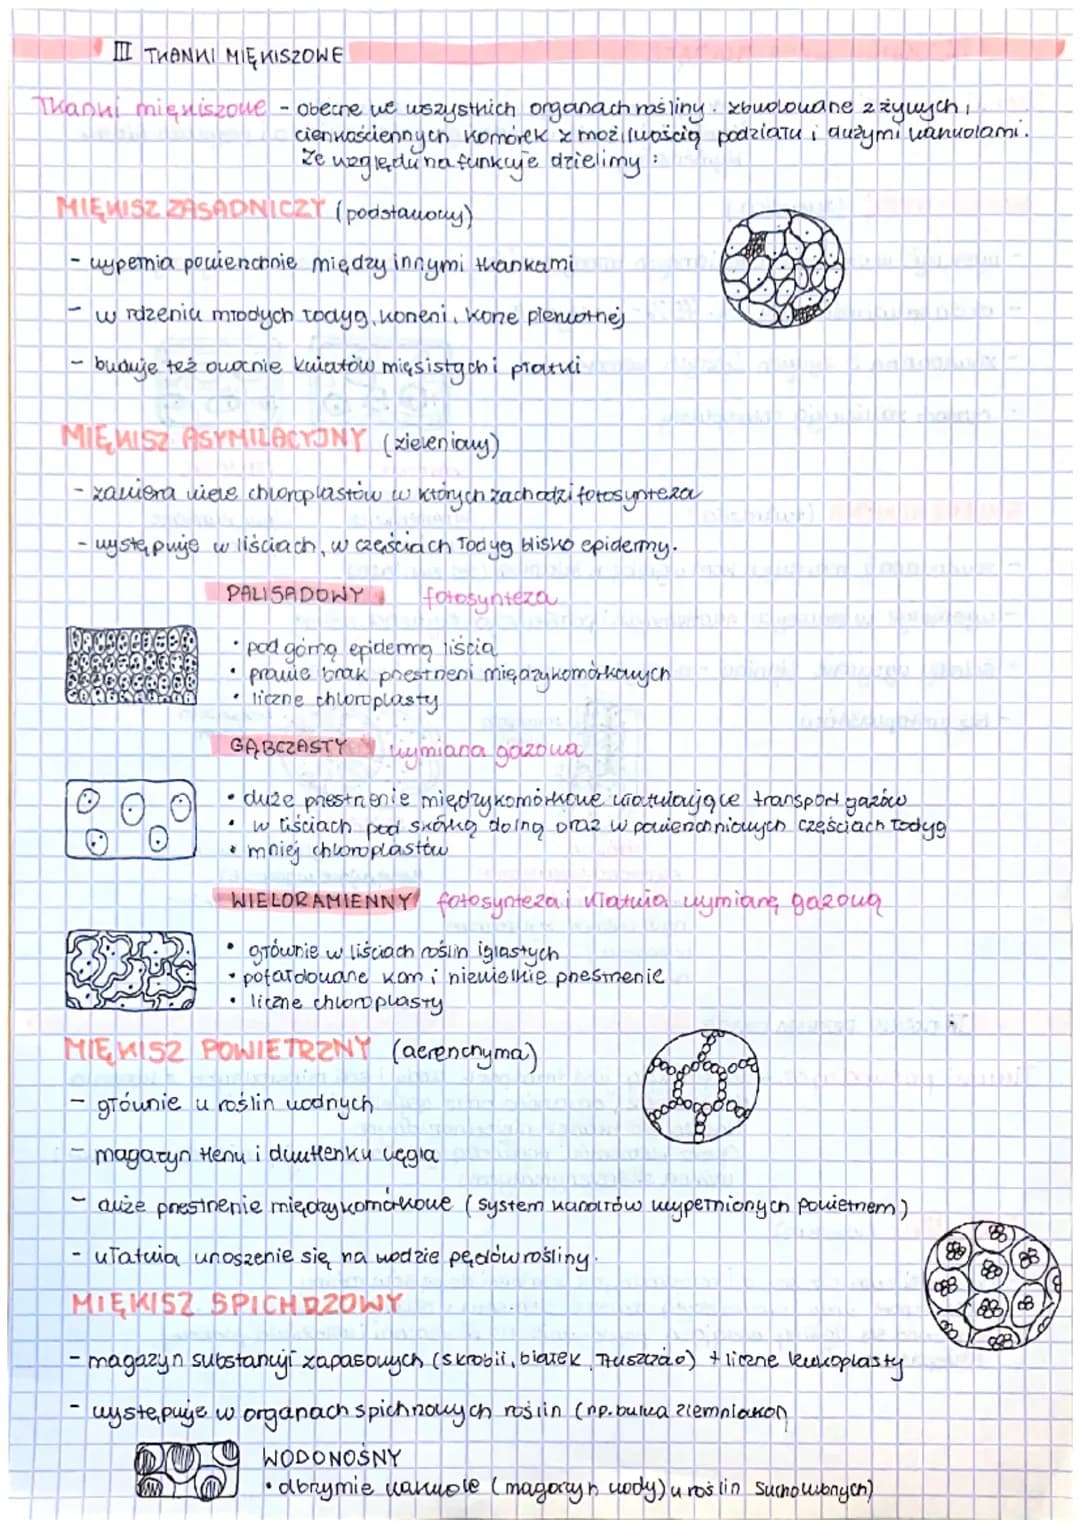 III TKANKI MIĘKISZOWE
Tkanki miękiszowe - obecne we wszystkich organach rośliny. zbudowane z żywych,
cienkościennych komórek z możliwością podziału i dużymi wakuolami.
Ze względu na funkcje dzielimy :
MIĘKISZ ZASADNICZY (podstawowy)
- wypełnia powierzchnie między innymi tkankami
- w rdzeniu młodych łodyg, korzeni, korze pierwotnej
- buduje też owocnie kwiatów mięsistych i płatki
MIĘKISZ ASYMILACYJNY (zieleniowy)
- zawiera wiele chloroplastów w których zachodzi fotosynteza
- występuje w liściach, w częściach łodyg blisko epidermy.
PALISADOWY fotosynteza
• pod górną epidermą liścia
• prawie brak przestrzeni międzykomórkowych
• liczne chloroplasty
GĄBCZASTY wymiana gazowa
• duże przestrzenie międzykomórkowe ułatwiające transport gazów
• w liściach pod skórką dolną oraz w powierzchniowych częściach łodyg
• mniej chloroplastów
WIELORAMIENNY fotosynteza i ułatwia wymianę gazową
• głównie w liściach roślin iglastych
• pofałdowane kom i niewielkie przestrzenie
• liczne chloroplasty
MIĘKISZ POWIETRZNY (aerenchyma)
- głównie u roślin wodnych
- magazyn tlenu i dwutlenku węgla
- duże przestrzenie międzykomórkowe (system kanałów wypełnionych powietrzem)
- ułatwia unoszenie się na wodzie pędów rośliny.
MIĘKISZ SPICHRZOWY
- magazyn substancji zapasowych (skrobii, białek, tłuszczão) + liczne leukoplasty
- występuje w organach spichrzowych roślin (np. bulwa ziemniaków
WODONOŚNY
• olbrzymie wakuole (magazyn wody) u roślin suchowbnych)